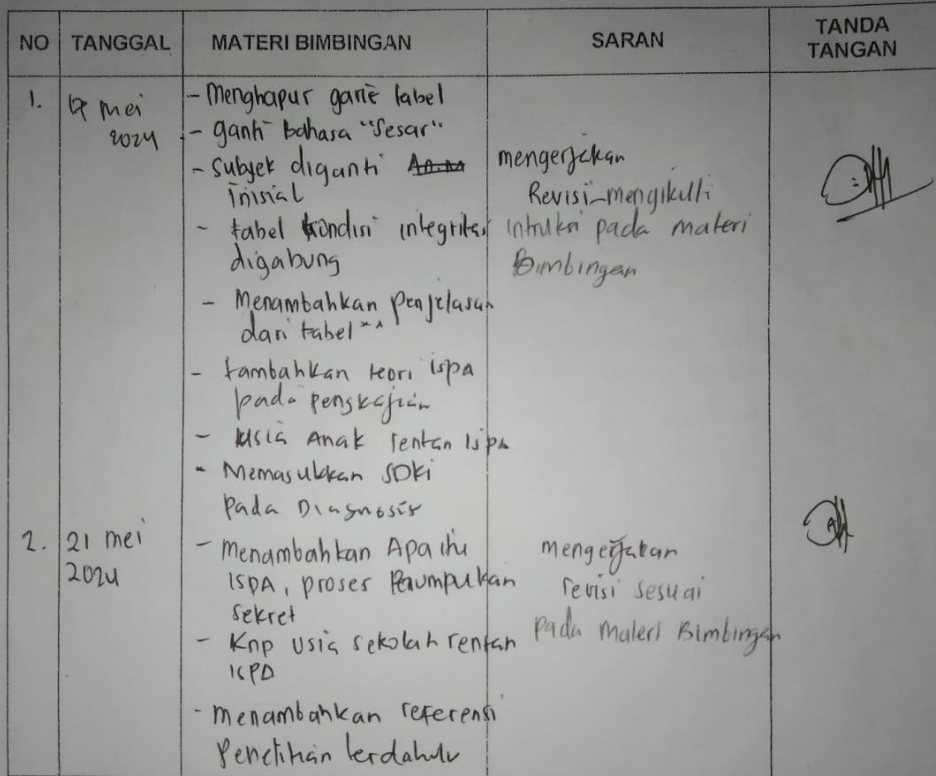 NO TANGGAL MATERI BIMBINGAN SARAN TANDA TANGAN
1. 17 mei 2024
- Menghapur garis label
- ganti Bahasa "Sesar"
- Subyek diganti
inisial
- tabel kondisi integritas
digabung
- Menambahkan penjelasan
dari tabel
- tambahkan teori ispa
pada pengkajian
- usia Anak rentan Ispa
- Memasukkan SDKI
pada Diagnosis
mengerjakan
Revisi mengikuti
intruksi pada materi
Bimbingan
2. 21 mei 2024
- Menambahkan Apa itu
ISPA, proses Penumpukan
sekret
- Knp usia sekolah rentan
ISPA
- menambahkan referensi
Penelitian terdahulu
mengerjakan
revisi sesuai
pada Materi Bimbingan